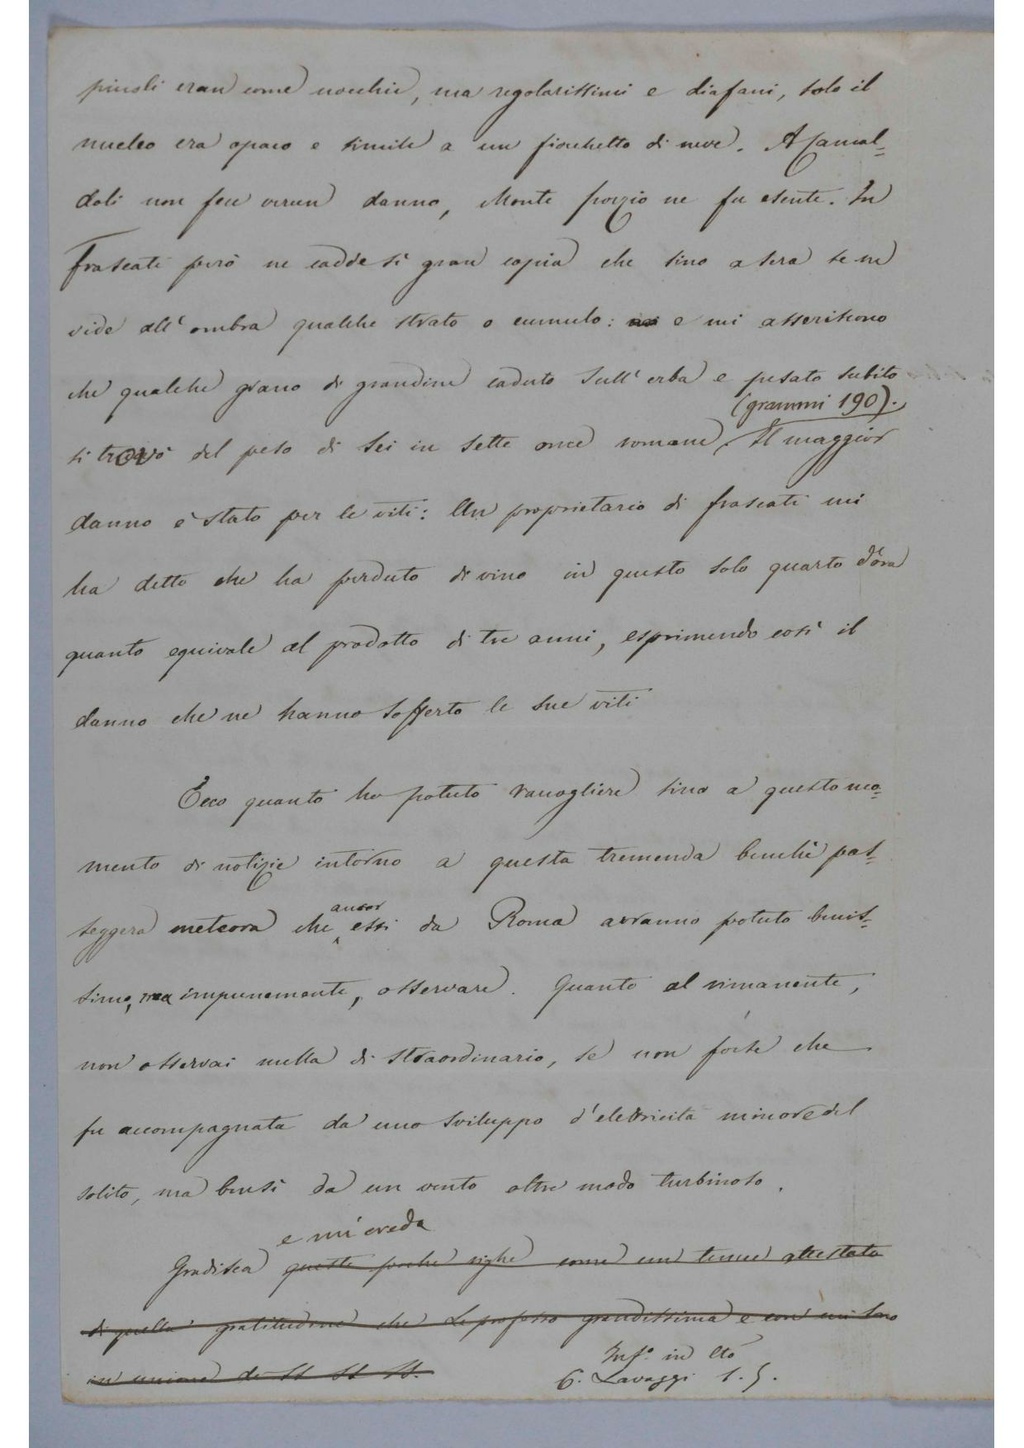 piccoli eran come nocchie, ma regolarissimi e diafani, solo il
nucleo era opaco e simile a un fiocchetto di neve. A Camal=
doli non fece verun danno, Monte porzio ne fu esente. In
Frascati però ne cadde sì gran copia che sino a sera se ne
vide all'ombra qualche strato o cumulo: e mi asseriscono
che qualche grano di grandine caduto sull'erba e pesato subito
(grammi 190).
si trovò del peso di sei in sette once romane. Il maggior
danno è stato per le viti: Un proprietario di frascati mi
ha detto che ha perduto di vino in questo solo quarto d'ora
quanto equivale al prodotto di tre anni, esprimendo così il
danno che ne hanno sofferto le sue viti
Ecco quanto ho potuto raccogliere sino a questo mo=
mento di notizie intorno a questa tremenda benchè pas=
ancor
seggera meteora che essi da Roma avranno potuto benis=
simo, ma impunemente, osservare. Quanto al rimanente,
non osservai nulla di straordinario, se non forse che
fu accompagnata da uno sviluppo d'eletricità minore del
solito, ma bensì da un vento oltre modo turbinoso.
e mi creda
Gradisca queste poche righe come un tenue attestato
di quella gratitudine che Le professo grandissima e con mi sono
in unione di SS SS SS.
Inf.o in Cto
C. Lavaggi S. J.